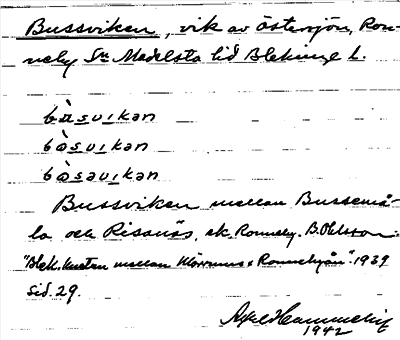 Bussviken, vik av Östersjön, Ron-
neby Sn Medelsta hd Blekinge l.
bàsvikən
bòsvikən
bòsəvikən
Bussviken mellan Bussemå-
la och Risanäs, sk. Ronneby. B. Ohlsson:
"Blek. kusten mellan Mörrums o Ronnebyån". 1939
Sid. 29.
Axel Hammerlig
1942